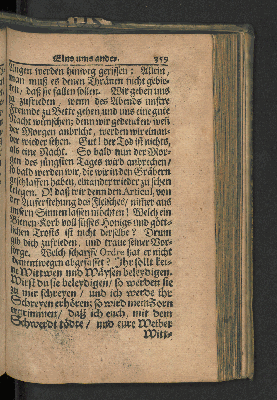 Eins ums ander. 359
Augen werden hinweg gerissen: Allein,
man muß es denen Thränen nicht gebie-
ten, daß sie fallen sollen. Wir geben uns
ja zufrieden, wenn des Abends unsre
Freunde zu Bette gehen und uns eine gute
Nacht wünschen; denn wir gedencken, weñ
der Morgen anbricht, werden wir einan-
der wieder sehen. Gut! der Tod ist nichts,
als eine Nacht. So bald nun der Mor-
gen des jüngsten Tages wird anbrechen/
so bald werden wir, die wir in den Gräbern
geschlaffen haben, einander wieder zu sehen
kriegen. O! daß wir denn den Articul, von
der Aufferstehung des Fleisches, näher aus
unsern Sinnen lassen möchten! Welch ein
Bienen-Korb voll süsses Honigs und gött-
lichen Trosts ist nicht derselbe? Drum
gib dich zufrieden, und traue seiner Vor-
sorge. Welch scharffe Ordre hat er nicht
dementwegen abgefasset? Ihr sollt kei-
ne Wittwen und Wäysen beleydigen.
Wirst du sie beleydigen/ so werden sie
zu mir schreyen/ und ich werde ihr
Schreyen erhören; so wird mein Zorn
ergrimmen/ daß ich euch, mit dem
Schwerdt tödte/ und eure Weiber
Witt-